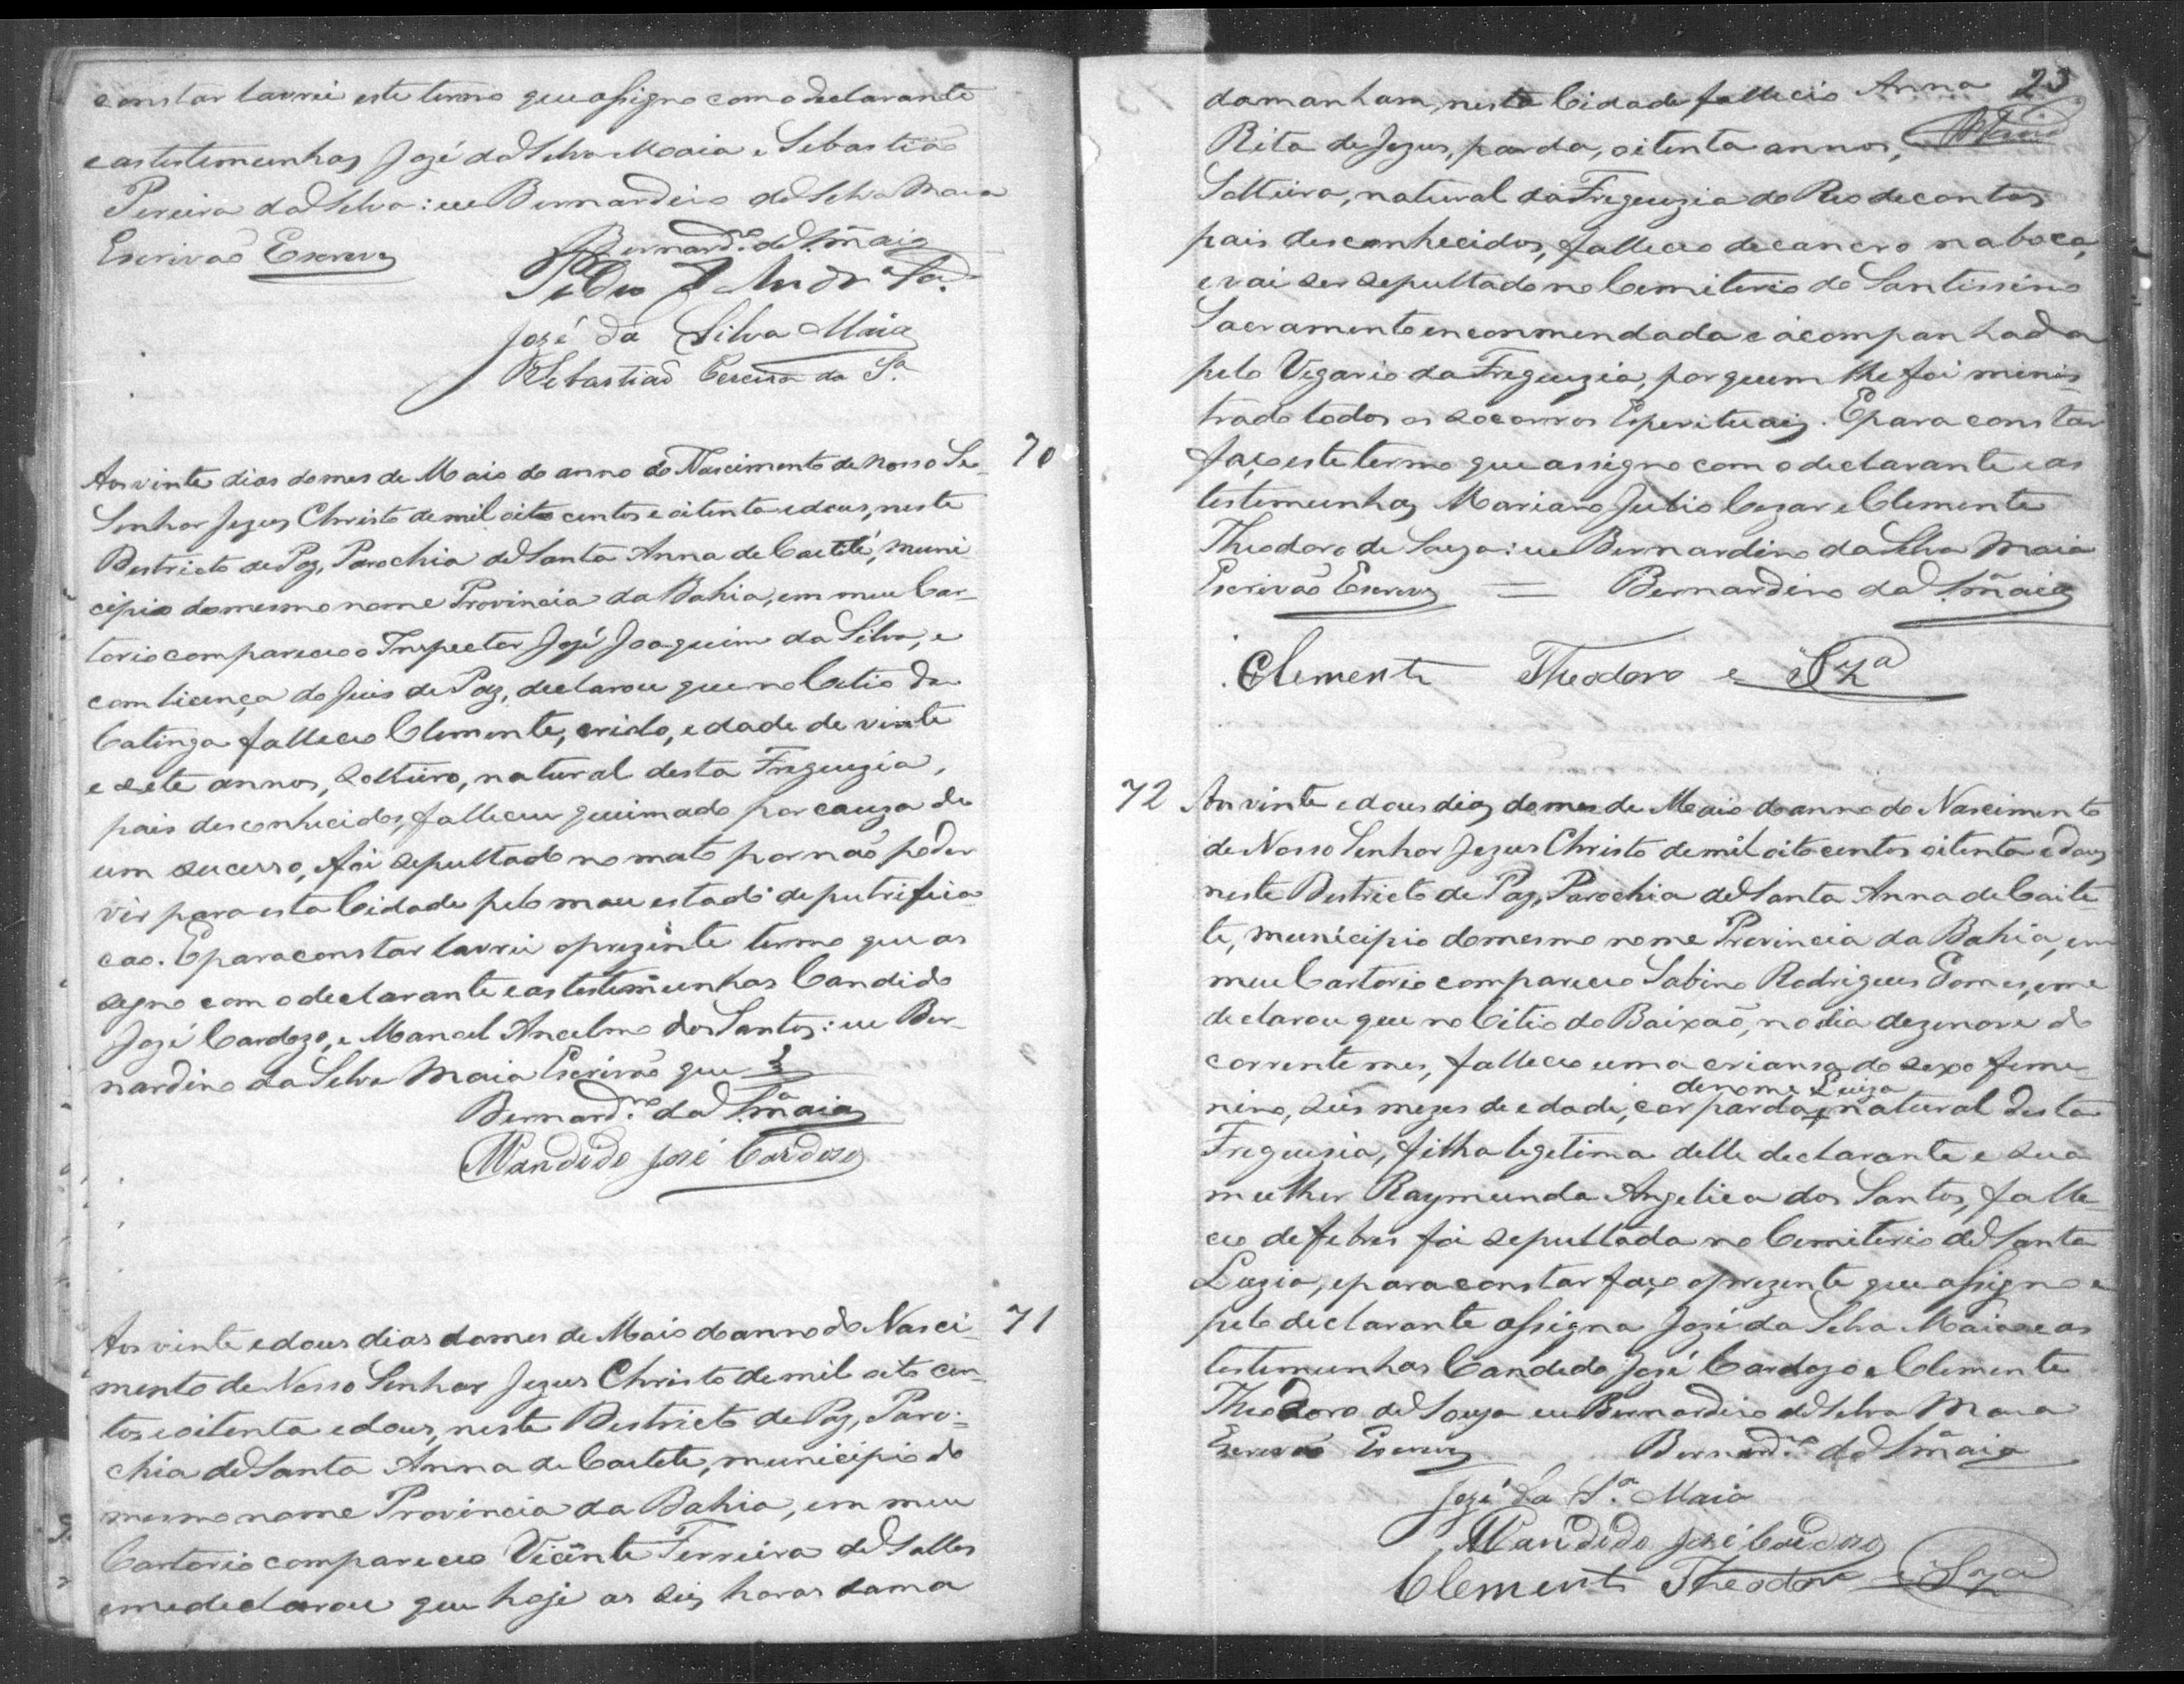 constar lavrei este termo que assigno com o declarante
e as testemunhas José da Silva Maia e Sebastião
Pereira da Silva: eu Bernardino da Silva Maia
Escrivão Escrevy
Bernard.no da S. Maia
Pedro
José da Silva Maia
Sebastião Pereira da Sa.
70
Aos vinte dias do mes de Maio do anno do Nascimento de Nosso Se-
Senhor Jezus Christo de mil oito centos e oitenta e dous, neste
Destricto de Paz, Parochia de Santa Anna de Caetité, muni
cipio do mesmo nome Provincia da Bahia, em meu Car-
torio compareceo o Inspector José Joaquim da Silva, e
com licença do Juis de Paz, declarou que no Citio da
Catinga falleceo Clemente, criolo, edade de vinte
e sete annos, solteiro, natural desta Freguezia,
pais desconhecidos, falleceu queimado por cauza de
um sucesso, e foi sepultado no mato por não poder
vir para esta Cidade pelo mau estado de putrifica
cao. E para constar lavrei o prezente termo que as
segno com o declarante e as testemunhas Candido
José Cardozo, e Manoel Ancelmo dos Santos: eu Ber-
nardino da Silva Maia Escrivão que
Bernard.no da S. Maia
Candido José Cardoso
71
Aos vinte e dous dias do mes de Maio do anno do Nasci-
mento de Nosso Senhor Jezus Christo de mil oito cen-
tos e oitenta e dous, neste Destricto de Paz, Paro-
chia de Santa Anna de Caetete, municipio do
mesmo nome Provincia da Bahia, em meu
Cartorio compareceo Vicente Ferreira de Salles
e me declarou que hoje as seis horas dama
23
damanham, nesta Cidade falleceo Anna
Rita de Jezus, parda, oitenta annos,
Solteira, natural da Freguezia do Rio de contas
pais desconhecidos, falleceo de cancro na boca,
e vai ser sepultado no Cemiterio do Santissimo
Sacramento enconmendada e acompanhada
pelo Vigario da Freguezia, por quem lhe foi minis-
trado todos os socorros Esperituais. E para constar
faço este termo que assigno com o declarante e as
testemunhas Mariano Julio Cezar e Clemente
Theodoro de Souza: eu Bernardino da Silva Maia
Escrivão Escrevy = Bernardino da S. Maia
Clemente Theodoro e Sza
72
Aos vinte e dous dias do mes de Maio do anno do Nascimento
de Nosso Senhor Jezus Christo de mil oito centos oitenta e dous
neste Destricto de Paz, Parochia de Santa Anna de Caite-
te, municipio do mesmo nome Provincia da Bahia, em
meu Cartorio compareceo Sabino Rodrigues Gomes, e me
declarou que no Citio do Baixão, no dia dezenove do
corrente mes, falleceo uma criansa do sexo feme-
de nome Luiza
nino, seis mezes de edade, cor parda, natural desta
Freguesia, filha legetima delle declarante e sua
mulher Raymunda Angelica dos Santos, falle-
ceo de febres foi sepultada no Cemiterio de Santa
Luzia, e para constar faço o prezente que assigno e
pelo declarante assigna José da Silva Maia e as
testemunhas Candido José Cardozo e Clemente
Theodoro de Souza eu Bernardino da Silva Maia
Escrivão Escrevy Bernard.no da S. Maia
José da Sa. Maia
Candido José Cardoso
Clemente Theodoro e Sza